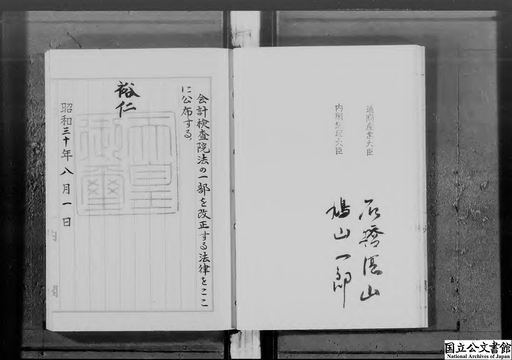 通商産業大臣
石橋湛山
内閣総理大臣
鳩山一郎
会計検査院法の一部を改正する法律をここ
に公布する。
裕仁
天皇
御璽
昭和三十年八月一日
国立公文書館
National Archives of Japan